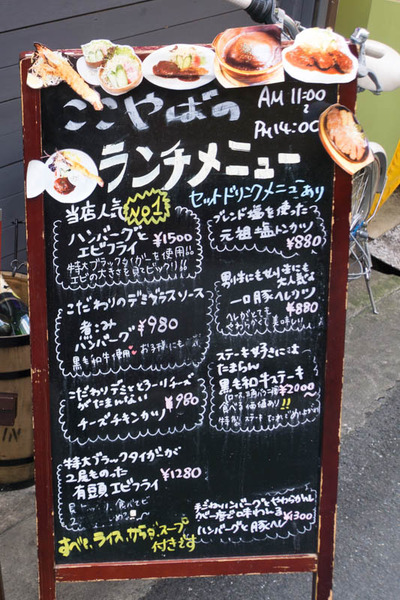 ここやばの
AM 11:00
〜
PM 14:00
ランチメニュー
セットドリンクメニューあり
当店人気No.1
ハンバーグと
エビフライ ¥1500
特大ブラックタイガーを使用!!
エビの大きさを見てビックリ!!
こだわりのデミグラスソース
煮込み ¥980
ハンバーグ
黒毛和牛使用
お子様にも
こだわりデミととろ〜りチーズ
がたまんない
チーズチキンカツ ¥980
特大ブラックタイガーが
2尾ものった
有頭エビフライ ¥1280
すべて、ライス、からし、スープ
付きです
ブレンド塩を使った
元祖塩トンカツ
¥880
男性にも女性にも
大人気
一口豚ヘレカツ
¥880
ヘレがとても
やわらかくて美味しい
ステーキ好きには
たまらん
黒毛和牛ステーキ
¥2000〜
食べる価値あり!!
特製ステーキ
手ごねハンバーグとやわらかヘレ
が一度で味わえる
ハンバーグと豚ヘレ ¥1300